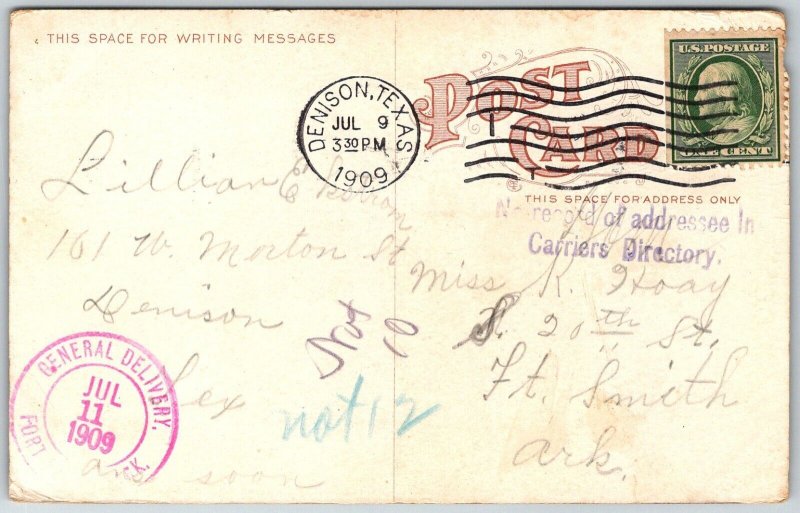 THIS SPACE FOR WRITING MESSAGES
POST CARD
U.S. POSTAGE
ONE CENT
DENISON, TEXAS
JUL 9
3 30 PM
1909
THIS SPACE FOR ADDRESS ONLY
No record of addressee in
Carriers Directory.
Lillian
161 W. Morton St
Denison
Tex
soon
Miss K. Hoay
S. 20th St.
Ft. Smith
Ark.
Not 10
not 12
GENERAL DELIVERY,
JUL
11
1909
FORT
ARK.